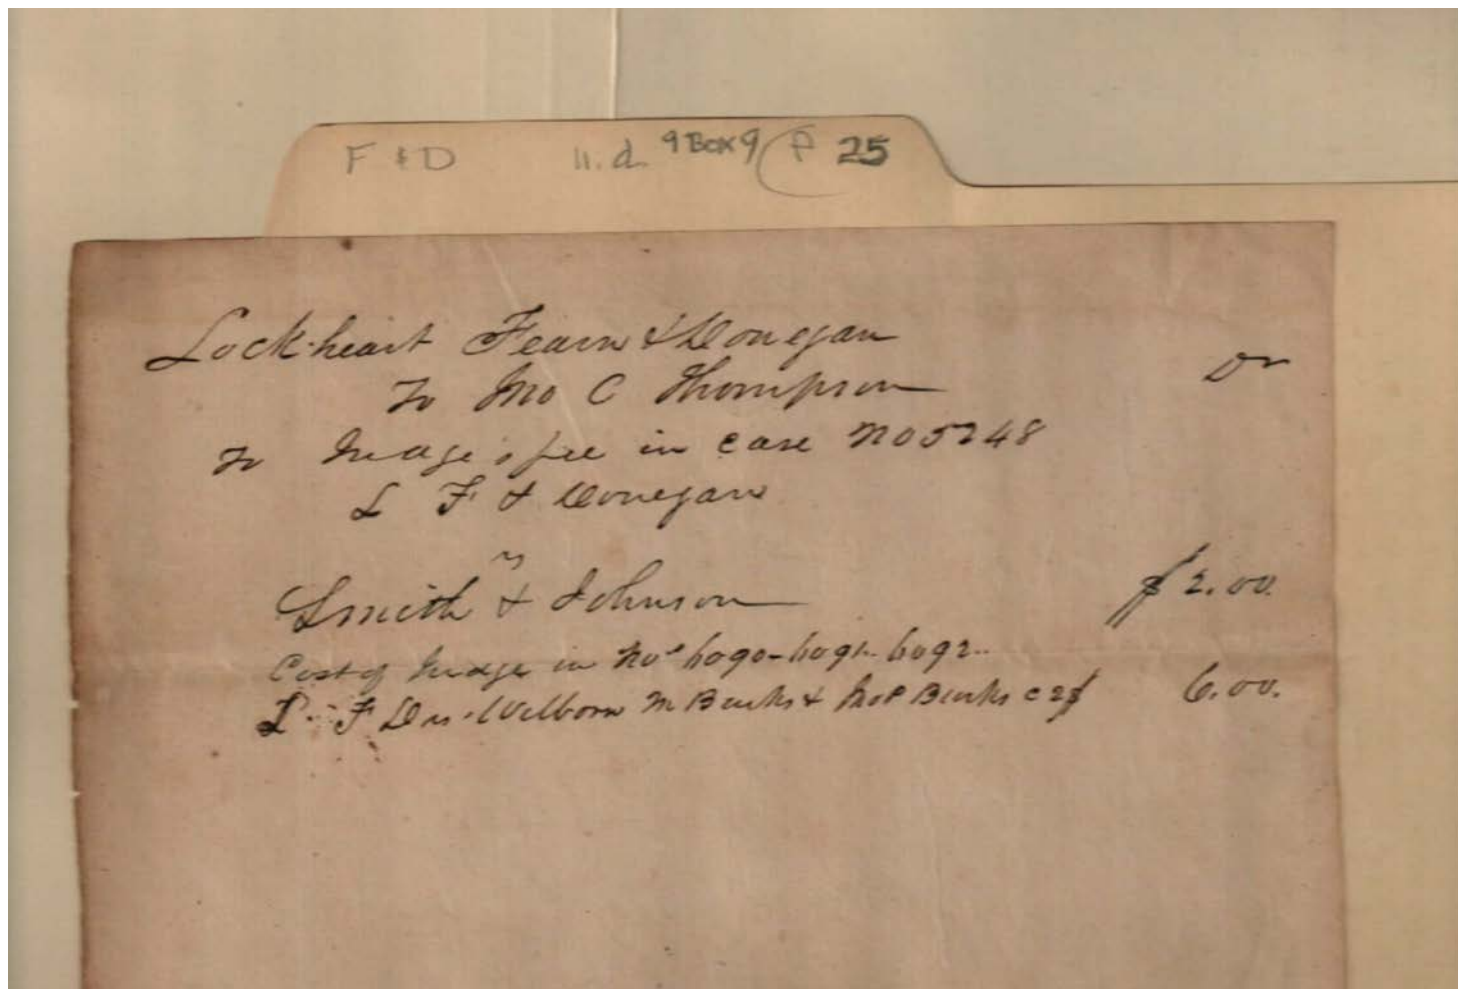 F & D n.d. 9 Box 9 P 25
Lockheart Fearn & Donegan
To Jno C Thompson Dr
To Judge's fee in case No 5248
L F & Donegan
vs
Smith & Johnson $2.00.
Cost of Judge in Nos 6090-6091-6092-
L. F D vs. Welborn M Burks & Jno P Burks 6.00.